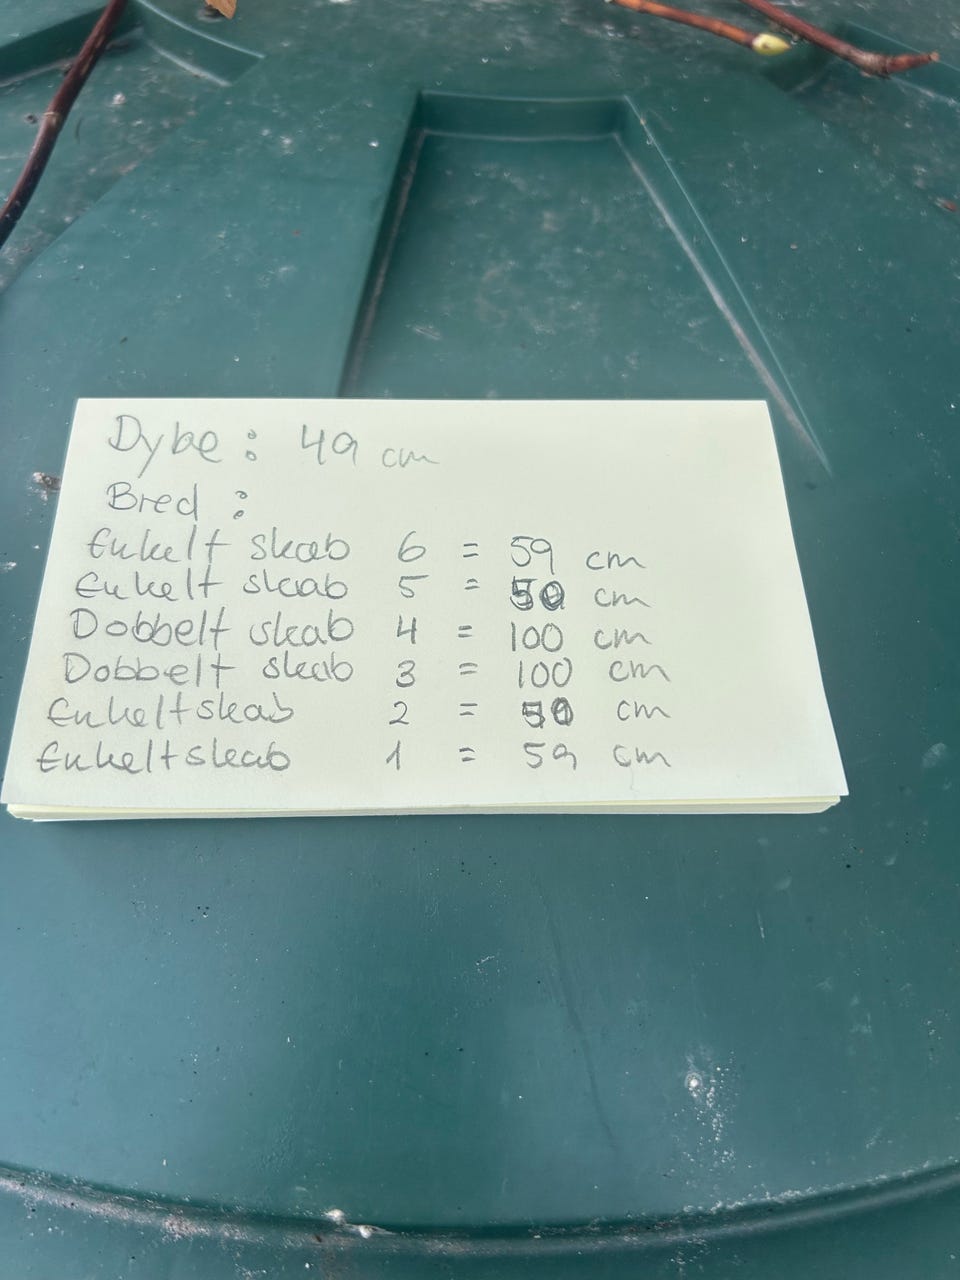 Dybe: 49 cm
Bred:
Enkelt skab 6 = 59 cm
Enkelt skab 5 = 50 cm
Dobbelt skab 4 = 100 cm
Dobbelt skab 3 = 100 cm
Enkeltskab 2 = cm
Enkeltskab 1 = 59 cm